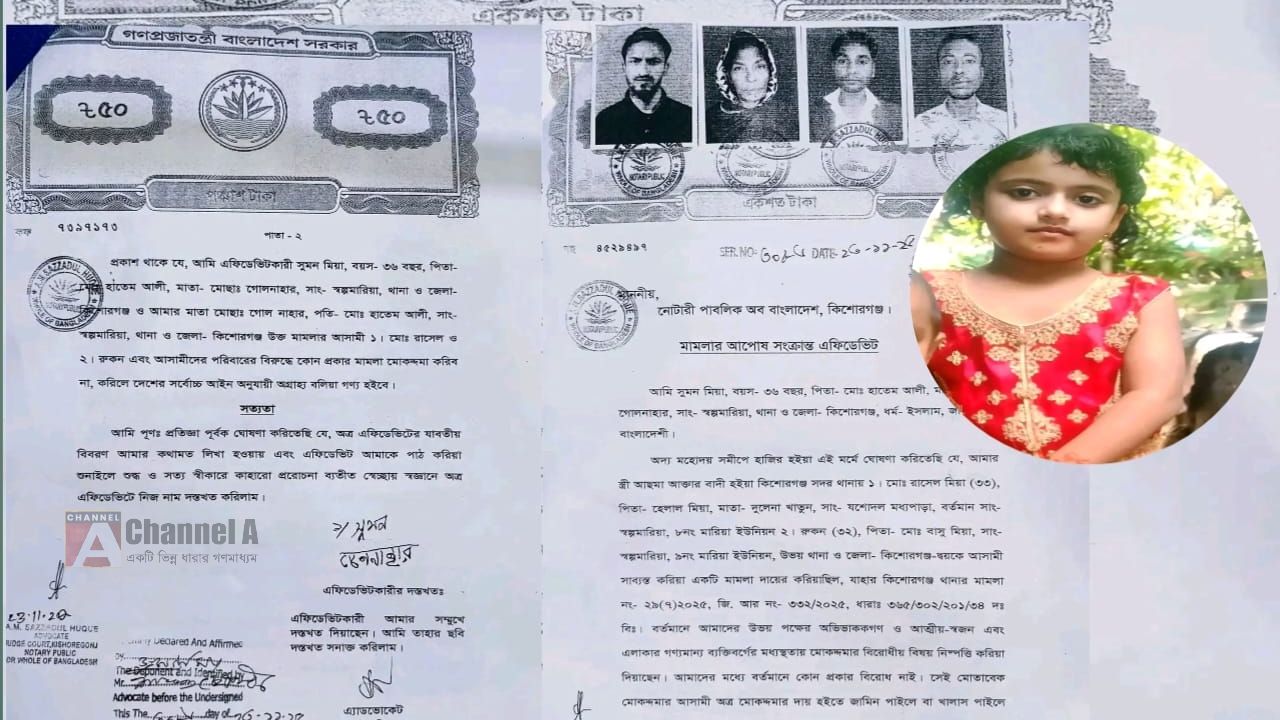 একশত টাকা
গণপ্রজাতন্ত্রী বাংলাদেশ সরকার
৳৫০
৳৫০
পঞ্চাশ টাকা
৭৩৯৭৯৭৩
পাতা - ২
প্রকাশ থাকে যে, আমি এফিডেভিটকারী সুমন মিয়া, বয়স- ৩৬ বছর, পিতা-
মোঃ হাতেম আলী, মাতা- মোছাঃ গোলনাহার, সাং- স্বল্পমারিয়া, থানা ও জেলা-
কিশোরগঞ্জ ও আমার মাতা মোছাঃ গোল নাহার, পতি- মোঃ হাতেম আলী, সাং-
স্বল্পমারিয়া, থানা ও জেলা- কিশোরগঞ্জ উক্ত মামলার আসামী ১। মোঃ রাসেল ও
২। রুকন এবং আসামীদের পরিবারের বিরুদ্ধে কোন প্রকার মামলা মোকদ্দমা করিব
না, করিলে দেশের সর্বোচ্চ আইন অনুযায়ী অগ্রাহ্য বলিয়া গণ্য হইবে।
সত্যতা
আমি পূণঃ প্রতিজ্ঞা পূর্বক ঘোষণা করিতেছি যে, অত্র এফিডেভিটের যাবতীয়
বিবরণ আমার কথামত লিখা হওয়ায় এবং এফিডেভিট আমাকে পাঠ করিয়া
শুনাইলে শুদ্ধ ও সত্য স্বীকারে কাহারো প্ররোচনা ব্যতীত স্বেচ্ছায় স্বজ্ঞানে অত্র
এফিডেভিটে নিজ নাম দস্তখত করিলাম।
CHANNEL
A
Channel A
একটি ভিন্ন ধারার গণমাধ্যম
সুমন
এফিডেভিটকারীর দস্তখতঃ
এফিডেভিটকারী আমার সম্মুখে
দস্তখত দিয়াছেন। আমি তাহার ছবি
দস্তখত সনাক্ত করিলাম।
এ্যাডভোকেট
A.M. SAZZADUL HUQUE
ADVOCATE
JUDGE COURT, KISHOREGONJ
NOTARY PUBLIC
FOR WHOLE OF BANGLADESH
Declared And Affirmed
by
The Deponent and Identified by
Mr.
Advocate before the Undersigned
This The day of
NOTARY PUBLIC
WHOLE OF BANGLADESH
একশত টাকা
৪৫২৯৪৯৭
SER. NO- DATE-
মাননীয়,
নোটারী পাবলিক অব বাংলাদেশ, কিশোরগঞ্জ।
মামলার আপোষ সংক্রান্ত এফিডেভিট
আমি সুমন মিয়া, বয়স- ৩৬ বছর, পিতা- মোঃ হাতেম আলী,
গোলনাহার, সাং- স্বল্পমারিয়া, থানা ও জেলা- কিশোরগঞ্জ, ধর্ম- ইসলাম,
বাংলাদেশী।
অদ্য মহোদয় সমীপে হাজির হইয়া এই মর্মে ঘোষণা করিতেছি যে, আমার
স্ত্রী আছমা আক্তার বাদী হইয়া কিশোরগঞ্জ সদর থানায় ১। মোঃ রাসেল মিয়া (৩৩),
পিতা- হেলাল মিয়া, মাতা- দুলেনা খাতুন, সাং- যশোদল মধ্যপাড়া, বর্তমান সাং-
স্বল্পমারিয়া, ৮নং মারিয়া ইউনিয়ন ২। রুকন (৩২), পিতা- মোঃ বাসু মিয়া, সাং-
স্বল্পমারিয়া, ৯নং মারিয়া ইউনিয়ন, উভয় থানা ও জেলা- কিশোরগঞ্জ-দ্বয়কে আসামী
সাব্যস্ত করিয়া একটি মামলা দায়ের করিয়াছিল, যাহার কিশোরগঞ্জ থানার মামলা
নং- ২৯(৭)২০২৫, জি. আর নং- ৩৩২/২০২৫, ধারাঃ ৩৬৫/৩০২/২০১/৩৪ দঃ
বিঃ। বর্তমানে আমাদের উভয় পক্ষের অভিভাবকগণ ও আত্মীয়-স্বজন এবং
এলাকার গণ্যমান্য ব্যক্তিবর্গের মধ্যস্থতায় মোকদ্দমার বিরোধীয় বিষয় নিষ্পত্তি করিয়া
দিয়াছেন। আমাদের মধ্যে বর্তমানে কোন প্রকার বিরোধ নাই। সেই মোতাবেক
মোকদ্দমার আসামী অত্র মোকদ্দমার দায় হইতে জামিন পাইলে বা খালাস পাইলে